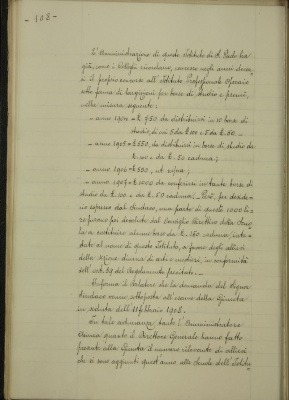 - 108 -
L'Amministrazione di questo Istituto di S. Paolo
come i Colleghi ricordano, concorse negli anni
il proprio concorso all'Istituto Professionale Operaio
sotto forma di largizioni per borse di studio e premi,
nella misura seguente:
- anno 1904 = £ 750 da distribuirsi in 10 borse di
studio, di cui 5 da £ 100 e 5 da £. 50. -
- anno 1905 = £ 550, da distribuirsi in borse di studio da
£. 100 e da £. 50 caduna;
- anno 1906 = £ 550, ut supra;
- anno 1907 = £ 1000 da conferirsi in tante borse di
studio da £. 100 e da £. 50 caduna; Però, per deside-
rio espresso dal Sindaco, una parte di queste 1000 li-
re furono poi destinate dal Consiglio Direttivo della Scuo-
la a costituire alcune borse da £. 150 caduna, inte-
state al nome di questo Istituto, a favore degli allievi
della sezione diurna di arti e mestieri, in conformità
dell'art. 39 del Regolamento precitato. -
Informa il Relatore che la domanda del Signor
Sindaco venne sottoposta all'esame della Giunta
in seduta dell' 11 febbraio 1908.
In tale adunanza tanto l'Amministratore
quanto il Direttore Generale hanno fatto
presente alla Giunta il numero rilevante di allievi
che si sono aggiunti quest'anno alle Scuole dell'Istituto